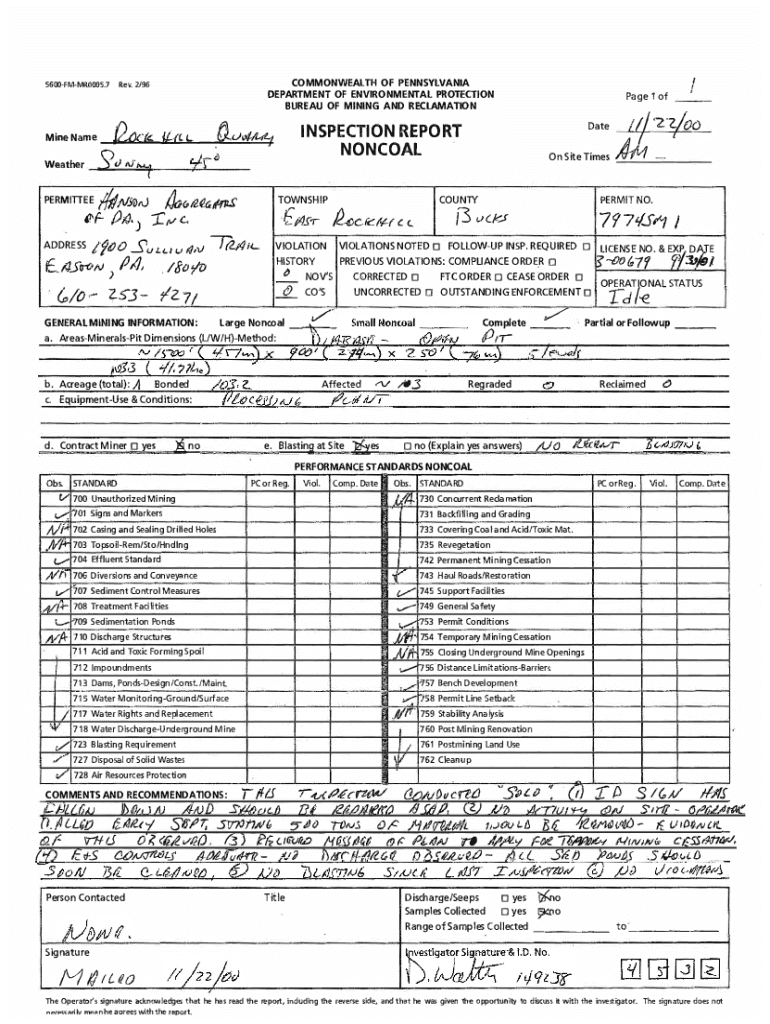 5600-FM-MR0005.7 Rev. 2/96
COMMONWEALTH OF PENNSYLVANIA
DEPARTMENT OF ENVIRONMENTAL PROTECTION
BUREAU OF MINING AND RECLAMATION
Page 1 of 1
INSPECTION REPORT
NONCOAL
Mine Name ROCK HILL QUARRY
Date 11/22/00
Weather SUNNY 45°
On Site Times AM
PERMITTEE HANSON AGGREGATES
OF PA., INC.
TOWNSHIP
EAST ROCKHILL
COUNTY
BUCKS
PERMIT NO.
7974SM1
ADDRESS 1900 SULLIVAN TRAIL
EASTON, PA. 18040
610-253-4271
VIOLATION
HISTORY
0 NOV'S
0 CO'S
VIOLATIONS NOTED □ FOLLOW-UP INSP. REQUIRED □
PREVIOUS VIOLATIONS: COMPLIANCE ORDER □
CORRECTED □ FTC ORDER □ CEASE ORDER □
UNCORRECTED □ OUTSTANDING ENFORCEMENT □
LICENSE NO. & EXP. DATE
3-00679 9/30/01
OPERATIONAL STATUS
Idle
GENERAL MINING INFORMATION: Large Noncoal ✓ Small Noncoal Complete ✓ Partial or Followup
a. Areas-Minerals-Pit Dimensions (L/W/H)-Method: DIABASE - OPEN PIT
~1500' (457m) x 900' (274m) x 250' (76m) 5 levels
103.3 (41.77ha)
b. Acreage (total): Bonded 103.2 Affected ~103 Regraded 0 Reclaimed 0
c. Equipment-Use & Conditions: PROCESSING PLANT
d. Contract Miner □ yes ☒ no e. Blasting at Site ☒ yes □ no (Explain yes answers) NO RECENT BLASTING
PERFORMANCE STANDARDS NONCOAL
Obs. STANDARD PC or Reg. Viol. Comp. Date Obs. STANDARD PC or Reg. Viol. Comp. Date
✓ 700 Unauthorized Mining NA 730 Concurrent Reclamation
✓ 701 Signs and Markers 731 Backfilling and Grading
NA 702 Casing and Sealing Drilled Holes 733 Covering Coal and Acid/Toxic Mat.
NA 703 Topsoil-Rem/Sto/Hndlng 735 Revegetation
✓ 704 Effluent Standard 742 Permanent Mining Cessation
NA 706 Diversions and Conveyance 743 Haul Roads/Restoration
✓ 707 Sediment Control Measures ✓ 745 Support Facilities
NA 708 Treatment Facilities ✓ 749 General Safety
✓ 709 Sedimentation Ponds ✓ 753 Permit Conditions
NA 710 Discharge Structures NA 754 Temporary Mining Cessation
711 Acid and Toxic Forming Spoil NA 755 Closing Underground Mine Openings
712 Impoundments ✓ 756 Distance Limitations-Barriers
713 Dams, Ponds-Design/Const./Maint. ✓ 757 Bench Development
715 Water Monitoring-Ground/Surface ✓ 758 Permit Line Setback
717 Water Rights and Replacement NA 759 Stability Analysis
718 Water Discharge-Underground Mine 760 Post Mining Renovation
✓ 723 Blasting Requirement 761 Postmining Land Use
✓ 727 Disposal of Solid Wastes 762 Cleanup
✓ 728 Air Resources Protection
COMMENTS AND RECOMMENDATIONS: THIS INSPECTION CONDUCTED "SOLO". (1) ID SIGN HAS
FALLEN DOWN AND SHOULD BE REPAIRED ASAP. (2) NO ACTIVITY ON SITE - OPERATOR
CALLED EARLY SEPT. STATING 500 TONS OF MATERIAL WOULD BE REMOVED - EVIDENCE
OF THIS OBSERVED. (3) RECIEVED MESSAGE OF PLAN TO APPLY FOR TEMPORARY MINING CESSATION.
(4) E+S CONTROLS ADEQUATE - NO DISCHARGE OBSERVED - ALL SED PONDS SHOULD
SOON BE CLEANED. (5) NO BLASTING SINCE LAST INSPECTION (6) NO VIOLATIONS
Person Contacted Title
NONE.
Discharge/Seeps □ yes ☒ no
Samples Collected □ yes ☒ no
Range of Samples Collected to
Signature
MAILED 11/22/00
Investigator Signature & I.D. No.
D. Watts 149238 4 5 3 2
The Operator's signature acknowledges that he has read the report, including the reverse side, and that he was given the opportunity to discuss it with the investigator. The signature does not
necessarily mean he agrees with the report.